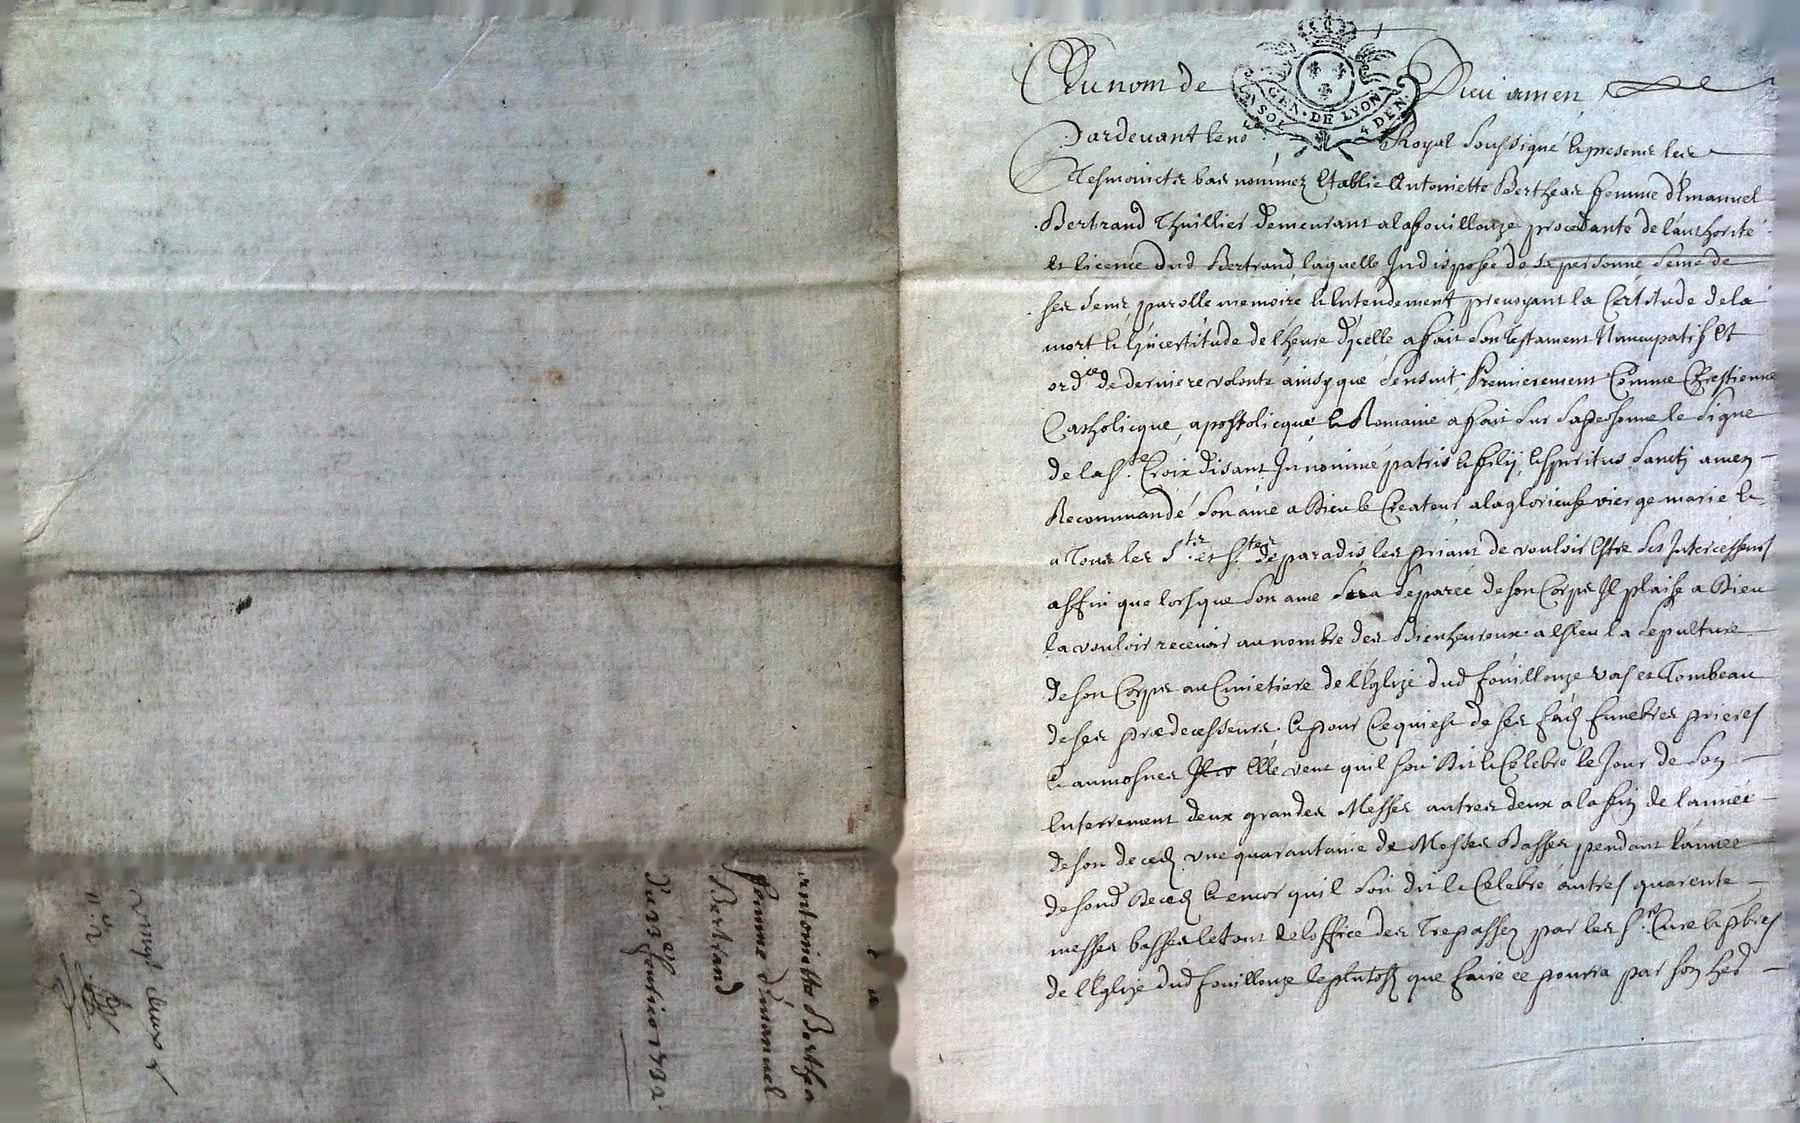 Au nom de Dieu amen
GEN. DE LYON
SOL 4 DEN.
Pardevant le no Royal soussigné & presens les
tesmoincts bas nommez Establie Antoinette Bertheas femme d'Emanuel
Bertrand Thuillier demeurant a la fouillouze procedante de l'authorité
et licence dud Bertrand, laquelle Indisposee de sa personne seine de
ses sens, parolle memoire & Entendement prevoyant la Certitude de la
mort & l'Incertitude de l'heure d'ycelle a fait son Testament Nuncupatif et
ord.ce de derniere volonte ainsy que sensuit, Premierement Comme Chrestienne
Catholicque, apostolicque & Romaine a fait sur sa personne le signe
de la S.te Croix disant In nomine patris & filij & spiritus sancti amen
Recommandé son ame a Dieu le Createur a la glorieuse vierge marie &
a Tous les S.ts et S.tes de paradis les priant de vouloir Estre ses Intercesseurs
affin que lorsque son ame sera separée de son Corps Il plaise a Dieu
la vouloir recevoir au nombre des Bienheureux a Esleu la sepulture
de son Corps au Cimetiere de l'Eglize dud fouillouze vas et Tombeau
de ses prædecesseurs, & pour Ce qui est de ses fraiz funebres prieres
& aumosnes Elle veut quil soit Dit & Celebré le Jour de son
Enterrement deux grandes Messes autres deux a la fin de l'année
de son deced, une quarantaine de Messes Basses pendant l'année
de sond Deced & encor quil soit dit & Celebré autres quarente
messes basses le tout de l'office des Trepassez par les S.rs Curé & pbres
de l'Eglize dud fouillouze le plutost que faire ce pourra par son hed
Antoinette Berthea
femme d'Emanuel
Bertrand
Du 23